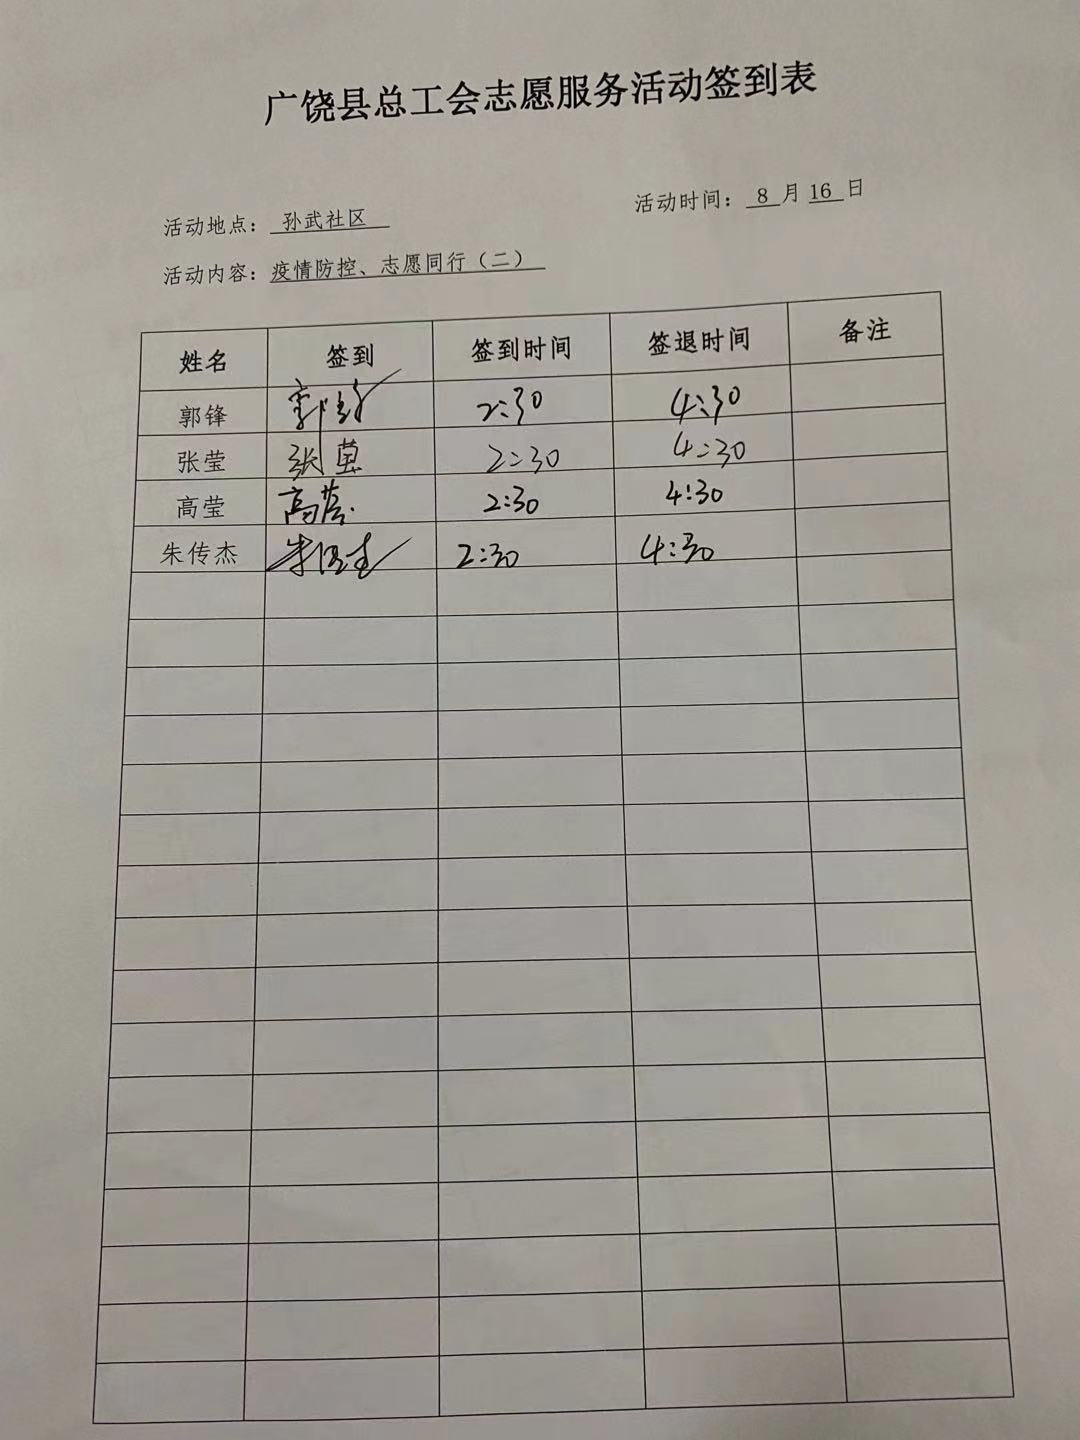 广饶县总工会志愿服务活动签到表
活动地点： 孙武社区 活动时间： 8 月 16 日
活动内容：疫情防控、志愿同行（二）
姓名 签到 签到时间 签退时间 备注
郭锋 郭锋 2:30 4:30
张莹 张莹 2:30 4:30
高莹 高莹 2:30 4:30
朱传杰 朱传杰 2:30 4:30